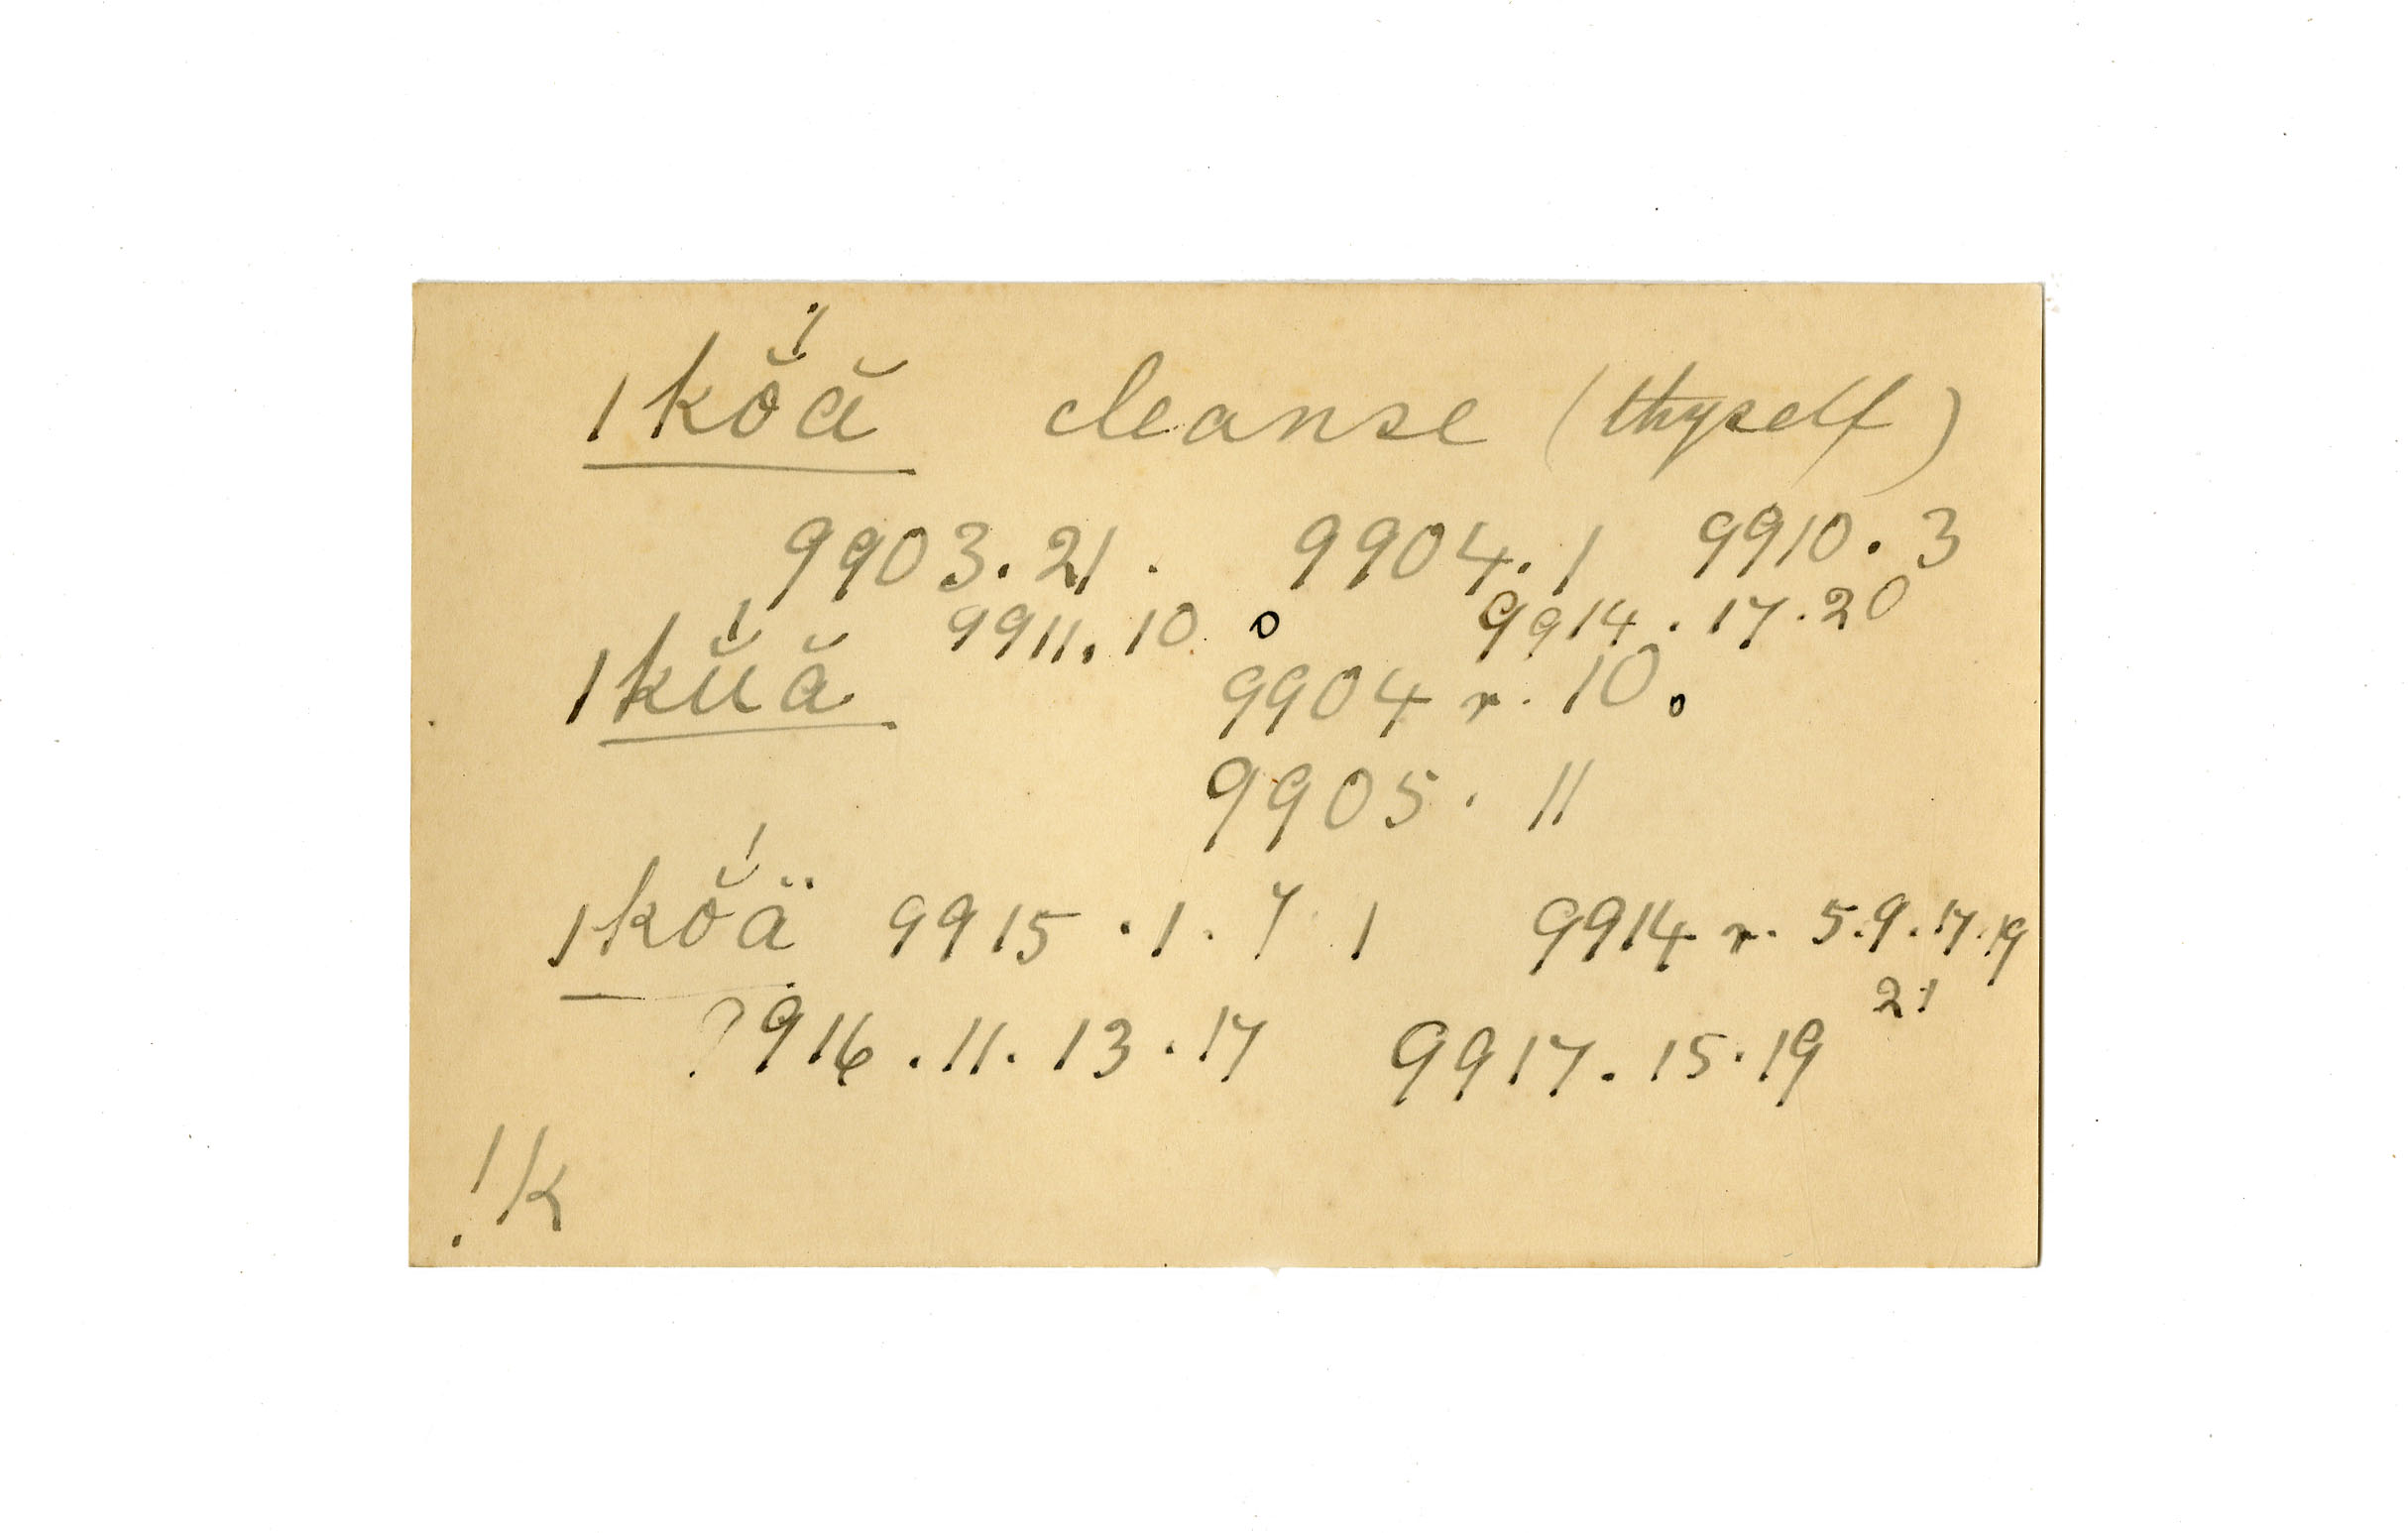 ǀkŏ́ă cleanse (thyself)
9903.21. 9904.1 9910.3
9911.10. o 9914.17.20
ǀkŭ́ă 9904 r. 10.
9905. 11
ǀkŏ́ä 9915.1.7 1 9914 r. 5.9.17.19
21
?916.11.13.17 9917.15.19
!k